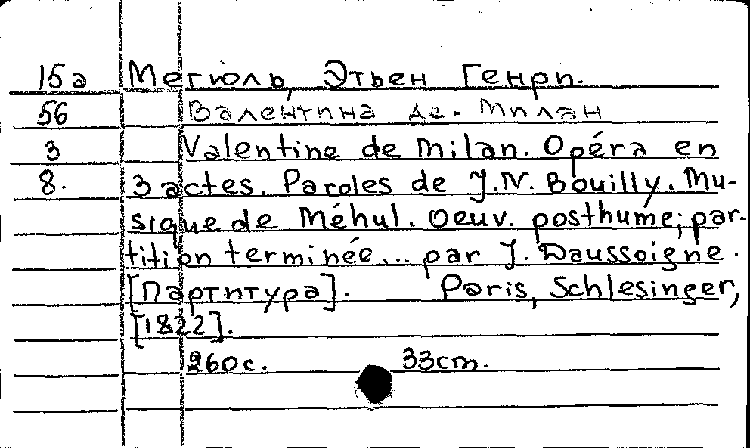 15а Мегюль, Этьен Генри.
56 Валентина де. Милан
3 Valentine de Milan. Opéra en
8. 3 actes. Paroles de J.N. Bouilly. Mu-
sique de Méhul. Oeuv. posthume; par-
tition terminée... par J. Daussoigne.
[Партитура]. Paris, Schlesinger,
[1822].
260с. 33cm.